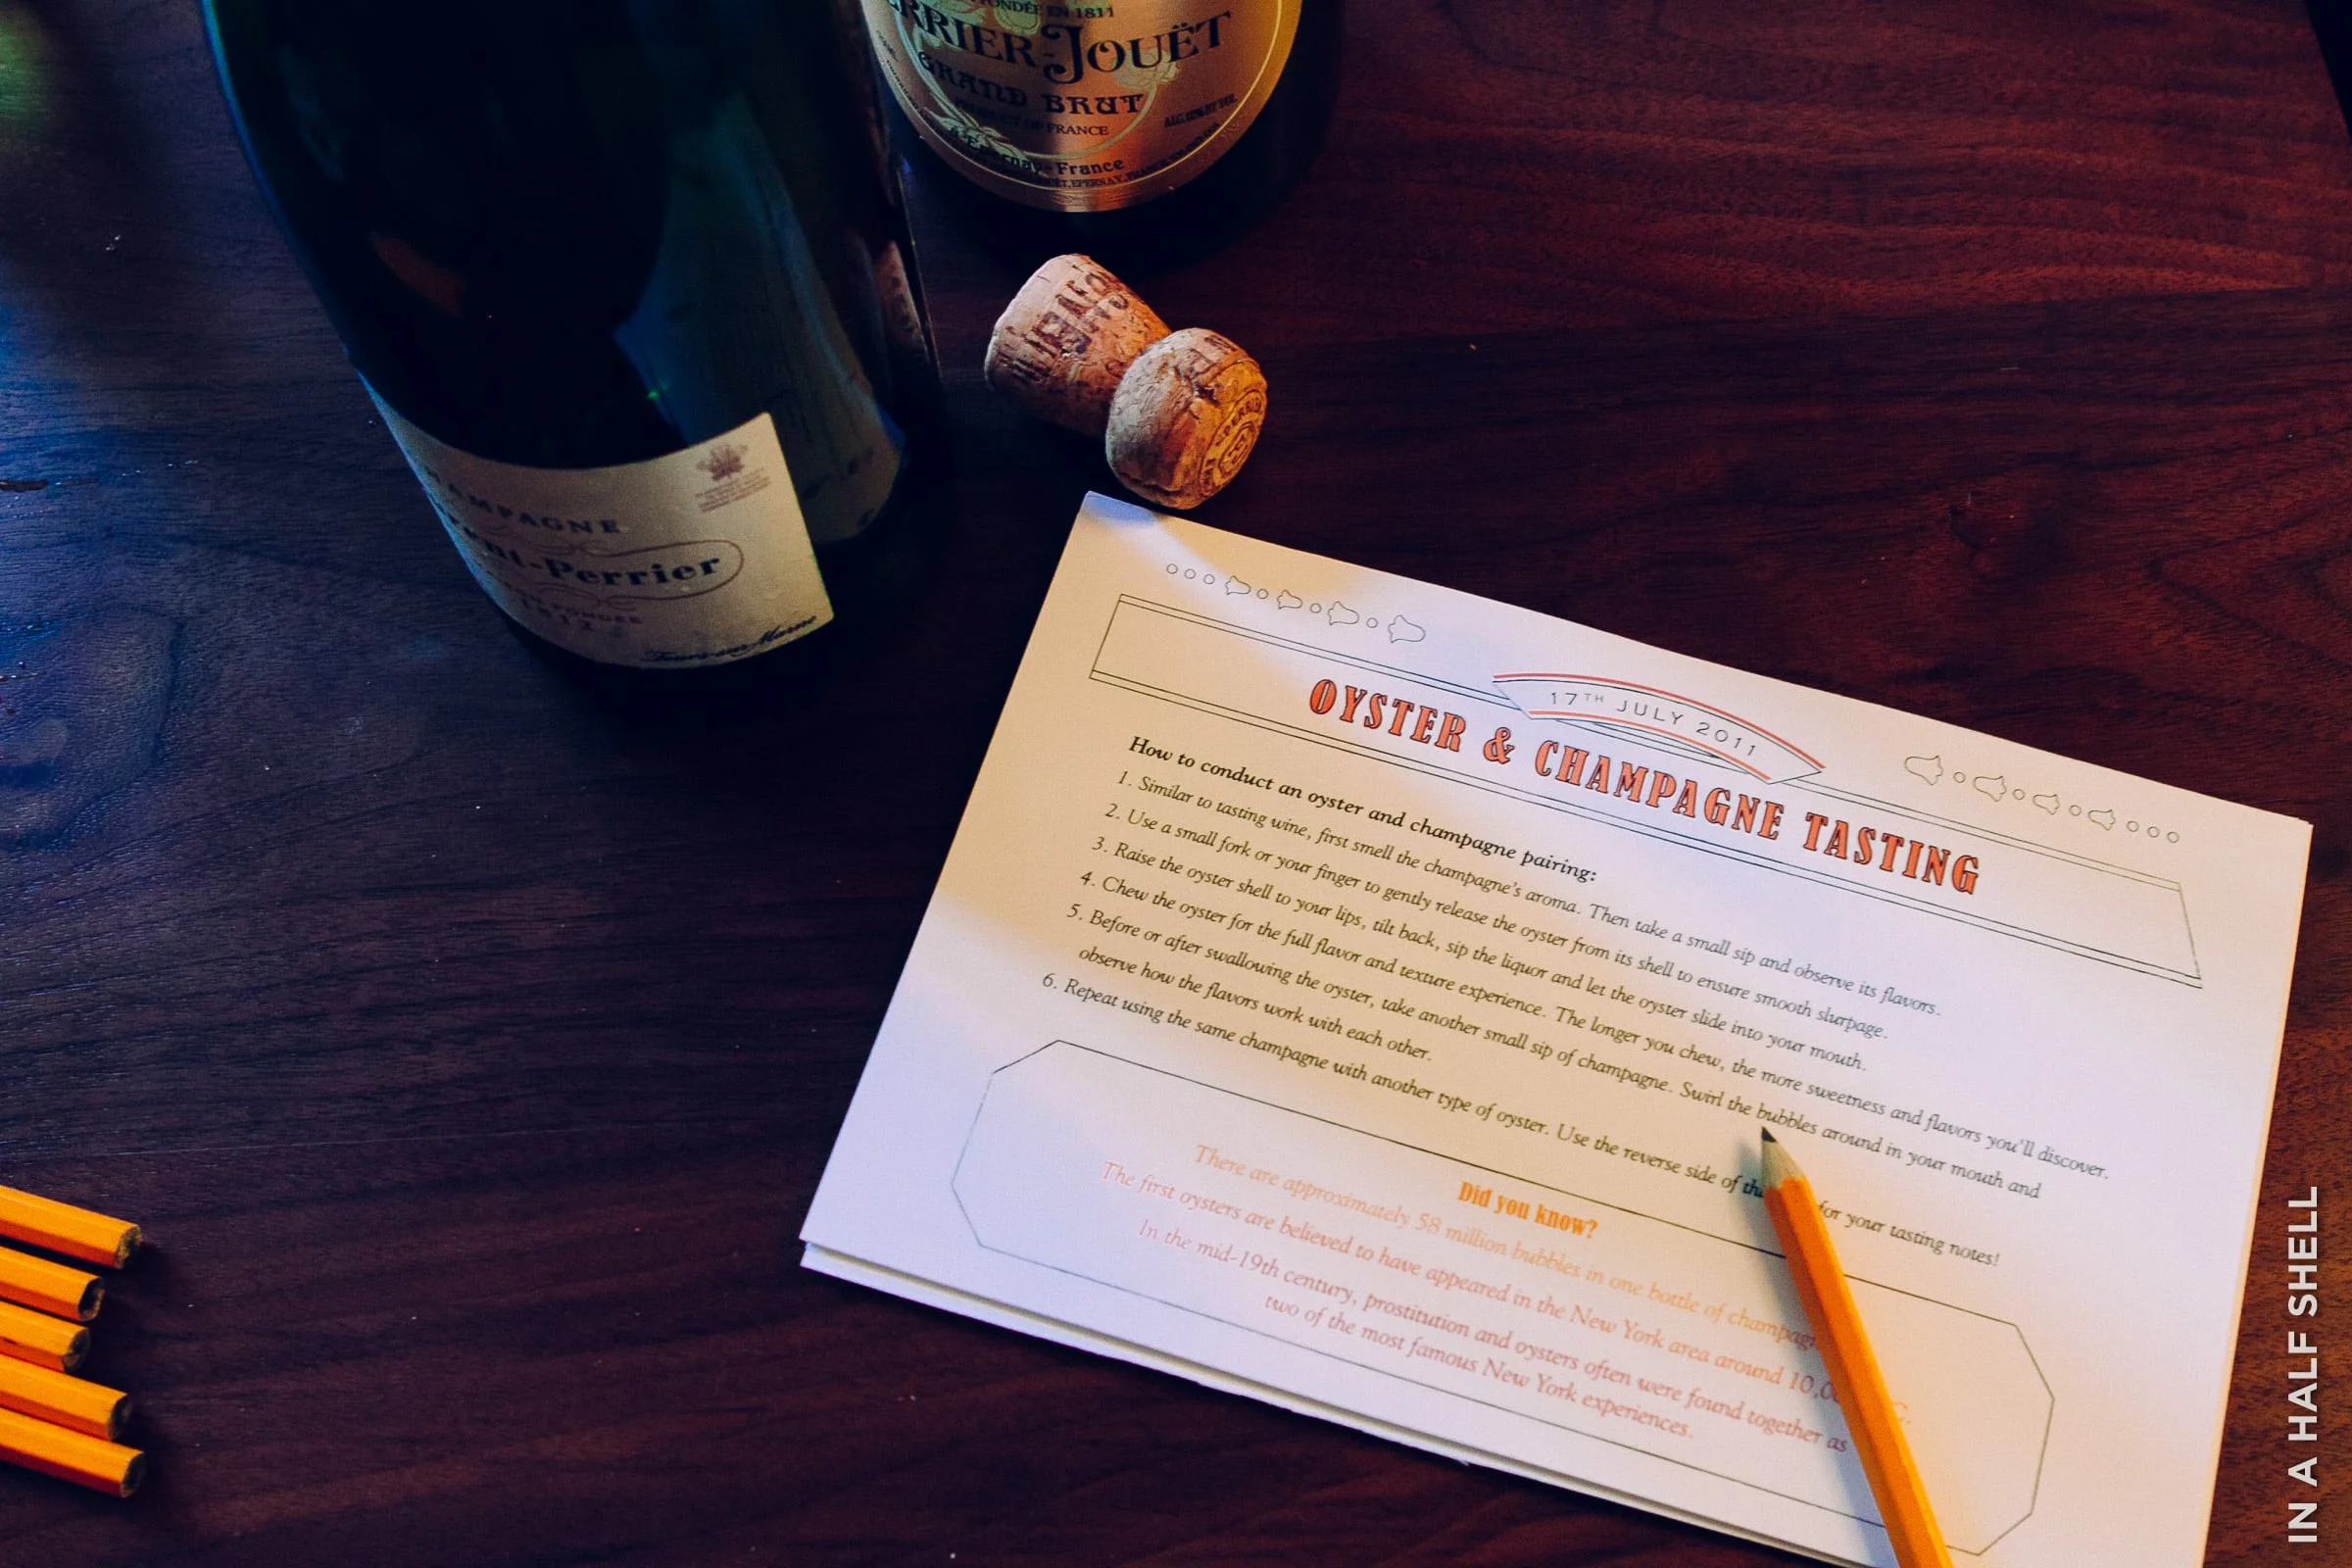 FONDÉE EN 1811
RRIER-JOUËT
GRAND BRUT
PRODUCT OF FRANCE
ALC. 12% BY VOL.
France
CHAMPAGNE
nt-Perrier
1812
Tours-sur-Marne
17TH JULY 2011
OYSTER & CHAMPAGNE TASTING
How to conduct an oyster and champagne pairing:
1. Similar to tasting wine, first smell the champagne's aroma. Then take a small sip and observe its flavors.
2. Use a small fork or your finger to gently release the oyster from its shell to ensure smooth slurpage.
3. Raise the oyster shell to your lips, tilt back, sip the liquor and let the oyster slide into your mouth.
4. Chew the oyster for the full flavor and texture experience. The longer you chew, the more sweetness and flavors you'll discover.
5. Before or after swallowing the oyster, take another small sip of champagne. Swirl the bubbles around in your mouth and
observe how the flavors work with each other.
6. Repeat using the same champagne with another type of oyster. Use the reverse side of for your tasting notes!
Did you know?
There are approximately 58 million bubbles in one bottle of champag
The first oysters are believed to have appeared in the New York area around 10,0
In the mid-19th century, prostitution and oysters often were found together as
two of the most famous New York experiences.
IN A HALF SHELL